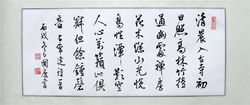 清晨入古寺初
日照高林竹径
通幽處禪房
花木深山光悦
鳥性潭影空
人心萬籟此俱
寂但餘鐘磬
音
丙戌